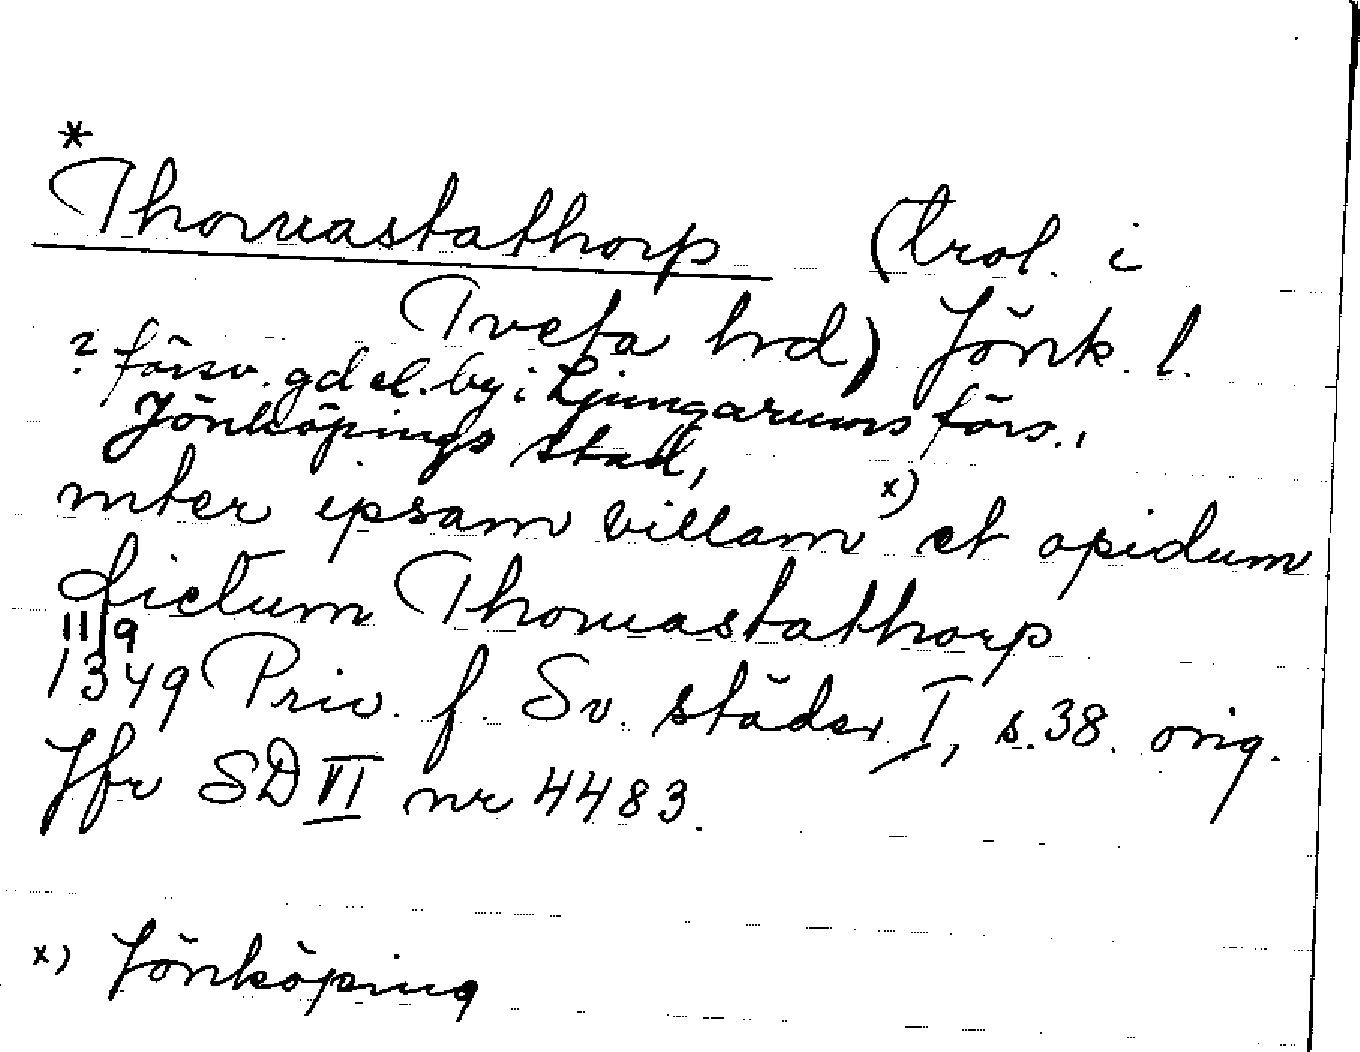 *
Thomastathorp (trol. i
Tveta hrd) Jönk. l.
? försv. gd el. by i Ljungarums förs.,
Jönköpings stad,
inter ipsam villam x) et opidum
dictum Thomastathorp
11/9
1349 Priv. f. Sv. städer I, s. 38. orig.
Jfr SD VI nr 4483.
x) Jönköping